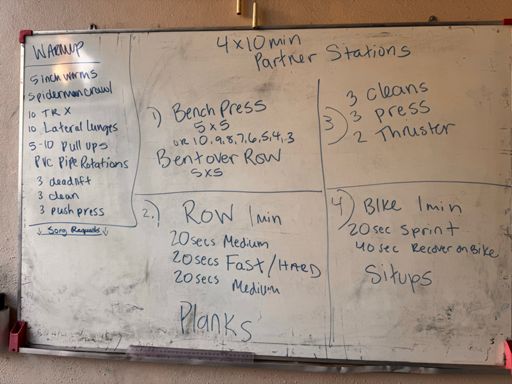 WARMUP
5 inchworms
5 piderman crawl
10 TRX
10 Lateral lunges
5-10 Pull ups
PVC Pipe Rotations
3 deadlift
3 clean
3 push press
↓ Song Requests ↓
4 x 10 min
Partner Stations
1) Bench Press
5 x 5
or 10, 9, 8, 7, 6, 5, 4, 3
Bentover Row
5x5
2) Row 1 min
20 secs Medium
20 secs Fast / HARD
20 secs Medium
Planks
3) 3 cleans
3 press
2 Thruster
4) BIKE 1 min
20 sec Sprint
40 sec Recover on Bike
Situps